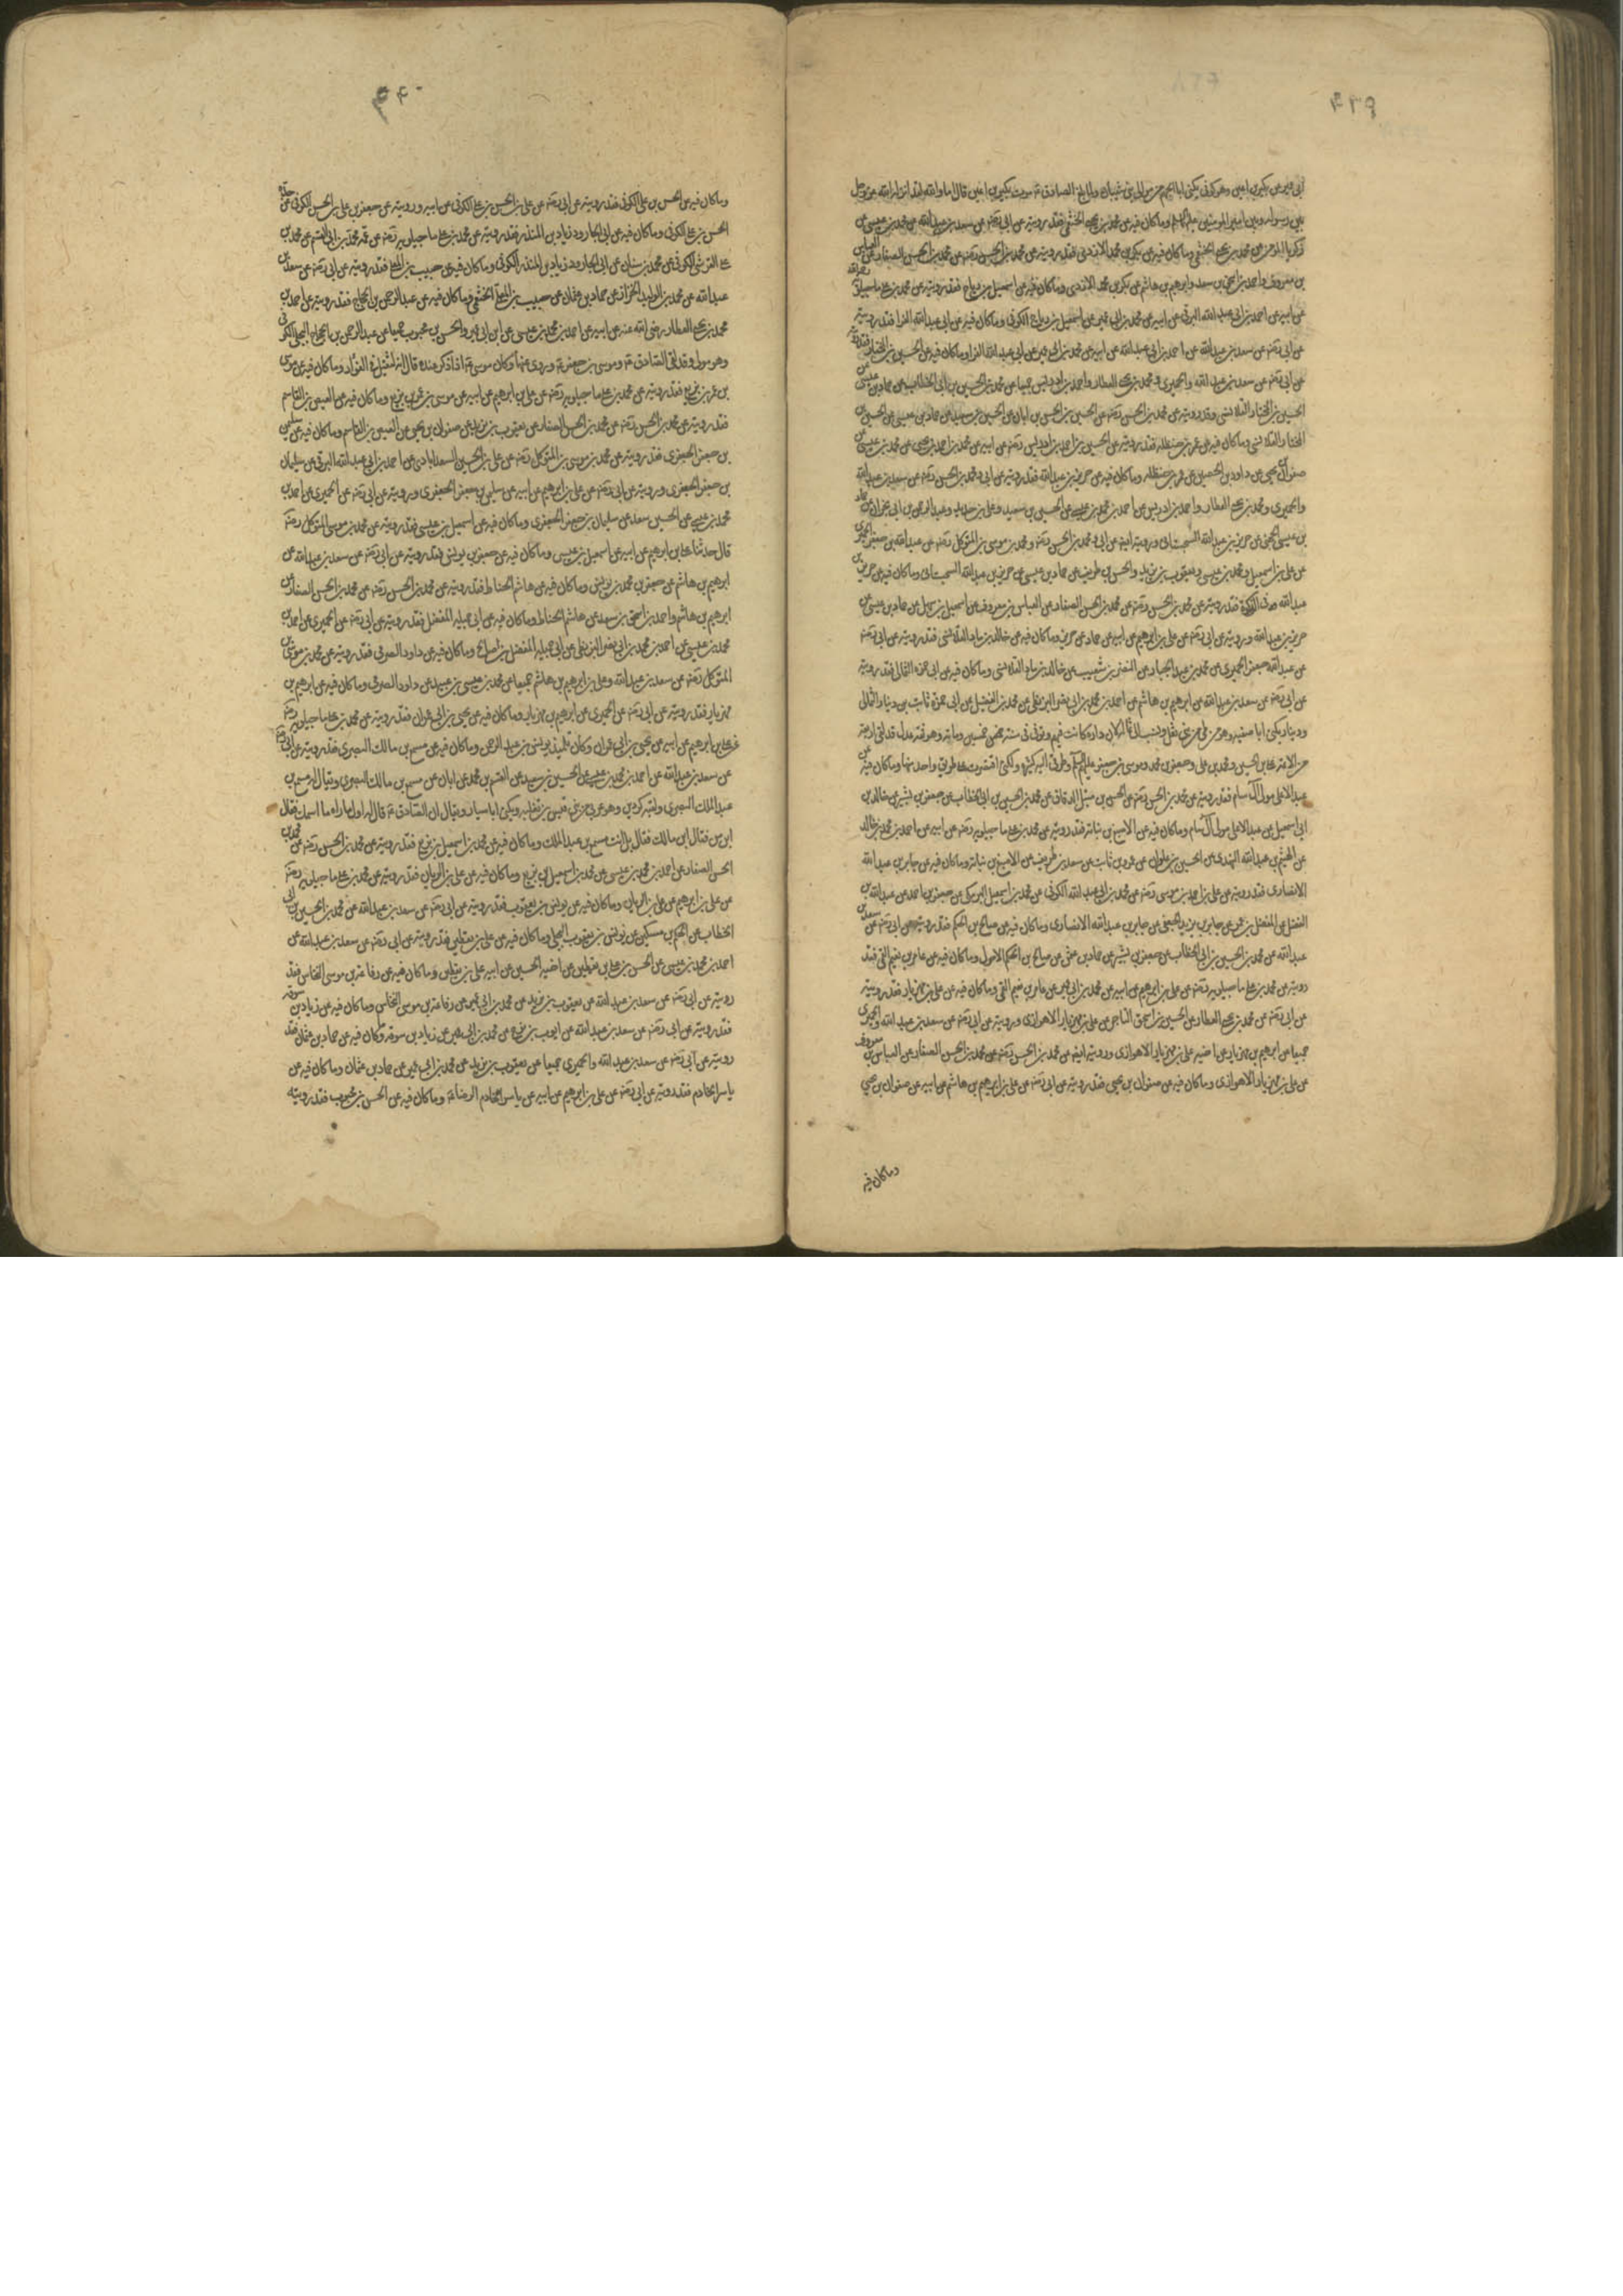 ابی عمیر عن بکیر بن اعین وهو کوفی یکنی ابا الجهم من موالی بنی شیبان ولما بلغ الصادق ع موت بکیر بن اعین قال اما والله لقد انزله الله عز وجل
بین رسوله وبین امیر المؤمنین وماکان فیه عن محمد بن یحیی الخثعمی فقد رویته عن ابی رضه عن سعد بن عبد الله عن محمد بن عیسی عن
زکریا المؤمن عن محمد بن یحیی الخثعمی وماکان فیه عن بکر بن محمد الازدی فقد رویته عن محمد بن الحسن رضه عن محمد بن الحسن الصفار عن العباس
بن معروف واحمد بن اسحق بن سعد وابرهیم بن هاشم عن بکر بن محمد الازدی وماکان فیه عن اسمعیل بن رباح فقد رویته عن محمد بن علی ماجیلویه
عن ابیه عن احمد بن ابی عبد الله البرقی عن ابیه عن محمد بن ابی عمیر عن اسمعیل بن رباح الکوفی وماکان فیه عن ابی عبد الله الفرا فقد رویته
عن ابی رضه عن سعد بن عبد الله عن احمد بن ابی عبد الله عن ابیه عن محمد بن ابی عمیر عن ابی عبد الله الفرا وماکان فیه عن الحسین بن المختار فقد رویته
عن ابی رضه عن سعد بن عبد الله والحمیری ومحمد بن یحیی العطار واحمد بن ادریس جمیعا عن محمد بن الحسین بن ابی الخطاب عن حماد بن عیسی عن
الحسین بن المختار القلانسی وقد رویته عن محمد بن الحسن رضه عن الحسین بن الحسن بن ابان عن الحسین بن سعید عن حماد بن عیسی عن الحسین بن
المختار القلانسی وماکان فیه عن عمر بن حنظله فقد رویته عن الحسین بن احمد بن ادریس رضه عن ابیه عن محمد بن احمد بن یحیی عن محمد بن عیسی عن
صفوان بن یحیی عن داود بن الحصین عن عمر بن حنظله وماکان فیه عن حریز بن عبد الله فقد رویته عن ابی ومحمد بن الحسن رضه عن سعد بن عبد الله
والحمیری ومحمد بن یحیی العطار واحمد بن ادریس عن احمد بن محمد بن عیسی عن الحسین بن سعید وعلی بن حدید وعبد الرحمن بن ابی نجران عن حماد
بن عیسی الجهنی عن حریز بن عبد الله السجستانی ورویته ایضا عن ابی ومحمد بن الحسن رضه ومحمد بن موسی بن المتوکل رضه عن عبد الله بن جعفر الحمیری
عن علی بن اسمعیل ومحمد بن عیسی ویعقوب بن یزید والحسن بن ظریف عن حماد بن عیسی عن حریز بن عبد الله السجستانی وماکان فیه عن حریز بن
عبد الله فی الزکوة فقد رویته عن محمد بن الحسن رضه عن محمد بن الحسن الصفار عن العباس بن معروف عن اسمعیل بن سهل عن حماد بن عیسی عن
حریز بن عبد الله ورویته عن ابی رضه عن علی بن ابرهیم عن ابیه عن حماد عن حریز وماکان فیه عن خالد بن زیاد القلانسی فقد رویته عن ابی رضه
عن عبد الله جعفر الحمیری عن محمد بن عبد الجبار عن النضر بن شعیب عن خالد بن زیاد القلانسی وماکان فیه عن ابی حمزه الثمالی فقد رویته
عن ابی رضه عن سعد بن عبد الله عن ابرهیم بن هاشم عن احمد بن محمد بن ابی نصر البزنطی عن محمد بن الفضیل عن ابی حمزة ثابت بن دینار الثمالی
ودینار یکنی ابا صفیه وهو من بنی ثعل ونسب الی ثمالة لان داره کانت فیهم وتوفی فی سنة خمسین ومایة وهو ثقة عدل قد لقی اربعة
من الائمة علی بن الحسین ومحمد بن علی وجعفر بن محمد وموسی بن جعفر علیهم السلم وطرقی الیه کثیره ولکنی اقتصرت علی طریق واحد منها وماکان فیه عن
عبد الاعلی مولی آل سام فقد رویته عن محمد بن الحسن رضه عن الحسن بن متیل الدقاق عن محمد بن الحسین بن ابی الخطاب عن جعفر بن بشیر عن خالد بن
ابی اسمعیل عن عبد الاعلی مولی آل سام وماکان فیه عن الاصبغ بن نباته فقد رویته عن محمد بن علی ماجیلویه رضه عن ابیه عن احمد بن محمد بن خالد
عن الهیثم بن عبد الله النهدی عن الحسین بن علوان عن عمرو بن ثابت عن سعد بن طریف عن الاصبغ بن نباته وماکان فیه عن جابر بن عبد الله
الانصاری فقد رویته عن علی بن احمد بن موسی رضه عن محمد بن ابی عبد الله الکوفی عن محمد بن اسمعیل البرمکی عن جعفر بن احمد عن عبد الله بن
الفضل عن المفضل بن عمر عن جابر بن یزید الجعفی عن جابر بن عبد الله الانصاری وماکان فیه عن صالح بن الحکم فقد رویته عن ابی رضه عن سعد بن
عبد الله عن محمد بن الحسین بن ابی الخطاب عن جعفر بن بشیر عن حماد بن عثمن عن صالح بن الحکم الاحول وماکان فیه عن عامر بن نعیم القمی فقد
رویته عن محمد بن علی ماجیلویه رضه عن علی بن ابرهیم عن ابیه عن محمد بن ابی عمیر عن عامر بن نعیم القمی وماکان فیه عن علی بن مهزیار فقد رویته
عن ابی رضه عن محمد بن یحیی العطار عن الحسین بن اسحق التاجر عن علی بن مهزیار الاهوازی ورویته عن ابی رضه عن سعد بن عبد الله والحمیری
جمیعا عن ابرهیم بن مهزیار عن اخیه علی بن مهزیار الاهوازی ورویته ایضا عن محمد بن الحسن رضه عن محمد بن الحسن الصفار عن العباس بن معروف
عن علی بن مهزیار الاهوازی وماکان فیه عن صفوان بن یحیی فقد رویته عن ابی رضه عن علی بن ابرهیم بن هاشم عن ابیه عن صفوان بن یحیی
وماکان فیه
وماکان فیه عن الحسن بن علی الکوفی فقد رویته عن ابی رضه عن علی بن الحسن بن علی الکوفی عن ابیه ورویته عن جعفر بن علی بن الحسن الکوفی عن جده
الحسن بن علی الکوفی وماکان فیه عن ابی الجارود زیاد بن المنذر فقد رویته عن محمد بن علی ماجیلویه رضه عن عمه محمد بن ابی القسم عن محمد بن
علی القرشی الکوفی عن محمد بن سنان عن ابی الجارود زیاد بن المنذر الکوفی وماکان فیه عن حبیب بن المعلی فقد رویته عن ابی رضه عن سعد بن
عبد الله عن محمد بن الولید الخزاز عن حماد بن عثمان عن حبیب بن المعلی الخثعمی وماکان فیه عن عبد الرحمن بن الحجاج فقد رویته عن احمد بن
محمد بن یحیی العطار رضی الله عنه عن ابیه عن احمد بن محمد بن عیسی عن ابن ابی عمیر والحسن بن محبوب جمیعا عن عبد الرحمن بن الحجاج البجلی الکوفی
وهو مولی وقد لقی الصادق ع وموسی بن جعفر ع وروی عنهما وکان موسی ع اذا ذکر عنده قال انه لثقیل فی الفؤاد وماکان فیه عن موسی
بن عمر بن بزیع فقد رویته عن محمد بن علی ماجیلویه رضه عن علی بن ابرهیم عن ابیه عن موسی بن عمر بن بزیع وماکان فیه عن العیص بن القاسم
فقد رویته عن محمد بن الحسن رضه عن محمد بن الحسن الصفار عن یعقوب بن یزید عن صفوان بن یحیی عن العیص بن القاسم وماکان فیه عن سلیمن
بن جعفر الجعفری فقد رویته عن محمد بن موسی بن المتوکل رضه عن علی بن الحسین السعدابادی عن احمد بن ابی عبد الله البرقی عن سلیمان
بن جعفر الجعفری ورویته عن ابی رضه عن علی بن ابرهیم عن ابیه عن سلیمن بن جعفر الجعفری ورویته عن ابی رضه عن الحمیری عن احمد بن
محمد بن عیسی عن الحسین سعد عن سلیمان بن جعفر الجعفری وماکان فیه عن اسمعیل بن عیسی فقد رویته عن محمد بن موسی المتوکل رضه
قال حدثنا علی بن ابرهیم عن ابیه عن اسمعیل بن عیسی وماکان فیه عن جعفر بن یونس فقد رویته عن ابی رضه عن سعد بن عبد الله عن
ابرهیم بن هاشم عن جعفر بن محمد بن یونس وماکان فیه عن هاشم الحناط فقد رویته عن محمد بن الحسن رضه عن محمد بن الحسن الصفار عن
ابرهیم بن هاشم واحمد بن اسحق بن سعد عن هاشم الحناط وماکان فیه عن ابی جمیله المفضل فقد رویته عن ابی رضه عن الحمیری عن احمد بن
محمد بن عیسی عن احمد بن محمد بن ابی نصر البزنطی عن ابی جمیله المفضل بن صالح وماکان فیه عن داود الصرمی فقد رویته عن محمد بن موسی بن
المتوکل رضه عن سعد بن عبد الله وعلی بن ابرهیم بن هاشم جمیعا عن محمد بن عیسی بن عبید عن داود الصرمی وماکان فیه عن ابرهیم بن
مهزیار فقد رویته عن ابی رضه عن الحمیری عن ابرهیم بن مهزیار وماکان فیه عن یحیی بن ابی عمران فقد رویته عن محمد بن علی ماجیلویه رضه
عن علی بن ابرهیم عن ابیه عن یحیی بن ابی عمران وکان تلمیذ یونس بن عبد الرحمن وماکان فیه عن مسمع بن مالک البصری فقد رویته عن ابی رضه
عن سعد بن عبد الله عن احمد بن محمد بن عیسی عن الحسین بن سعید عن القسم بن محمد عن ابان عن مسمع بن مالک البصری ویقال له مسمع بن
عبد الملک البصری ولقبه کردین وهو عربی من بنی قیس بن ثعلبه ویکنی ابا سیار ویقال ان الصادق ع قال له اول ما راه ما اسمک فقال
مسمع فقال ابن من فقال ابن مالک فقال بل انت مسمع بن عبد الملک وماکان فیه عن محمد بن اسمعیل بن بزیع فقد رویته عن محمد بن الحسن رضه عن محمد بن
الحسن الصفار عن احمد بن محمد بن عیسی عن محمد بن اسمعیل بن بزیع وماکان فیه عن علی بن الریان فقد رویته عن محمد بن علی ماجیلویه رضه
عن علی بن ابرهیم عن علی بن الریان وماکان فیه عن یونس بن یعقوب فقد رویته عن ابی رضه عن سعد بن عبد الله عن محمد بن الحسین بن ابی
الخطاب عن الحکم بن مسکین عن یونس بن یعقوب البجلی وماکان فیه عن علی بن یقطین فقد رویته عن ابی رضه عن سعد بن عبد الله عن
احمد بن محمد بن عیسی عن الحسن بن علی بن یقطین عن اخیه الحسین عن ابیه علی بن یقطین وماکان فیه عن رفاعة بن موسی النخاس فقد
رویته عن ابی رضه عن سعد بن عبد الله عن یعقوب بن یزید عن محمد بن ابی عمیر عن رفاعة بن موسی النخاس وماکان فیه عن زیاد بن سوقه
فقد رویته عن ابی رضه عن سعد بن عبد الله عن ایوب بن نوح عن محمد بن ابی عمیر عن زیاد بن سوقه وماکان فیه عن حماد بن عثمان فقد
رویته عن ابی رضه عن سعد بن عبد الله والحمیری جمیعا عن یعقوب بن یزید عن محمد بن ابی عمیر عن حماد بن عثمان وماکان فیه عن
یاسر الخادم فقد رویته عن ابی رضه عن علی بن ابرهیم عن ابیه عن یاسر الخادم الرضا ع وماکان فیه عن الحسن بن محبوب فقد رویته